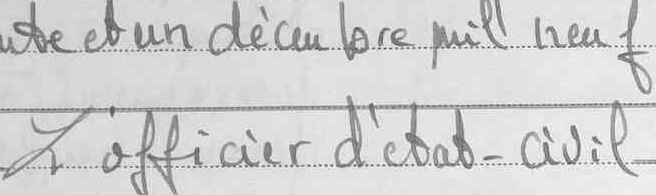 nte et un décembre mil neuf
L'officier d'état-civil